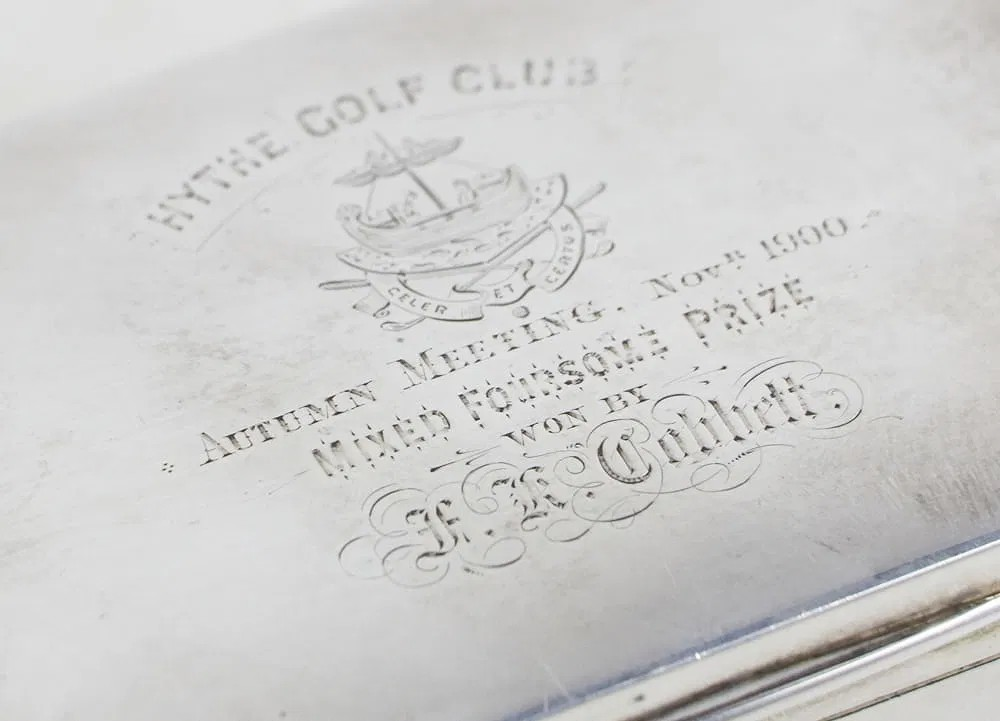 HYTHE GOLF CLUB
CELER ET CERTUS
AUTUMN MEETING. Novr. 1900
MIXED FOURSOME PRIZE
WON BY
F. R. Cobbett.